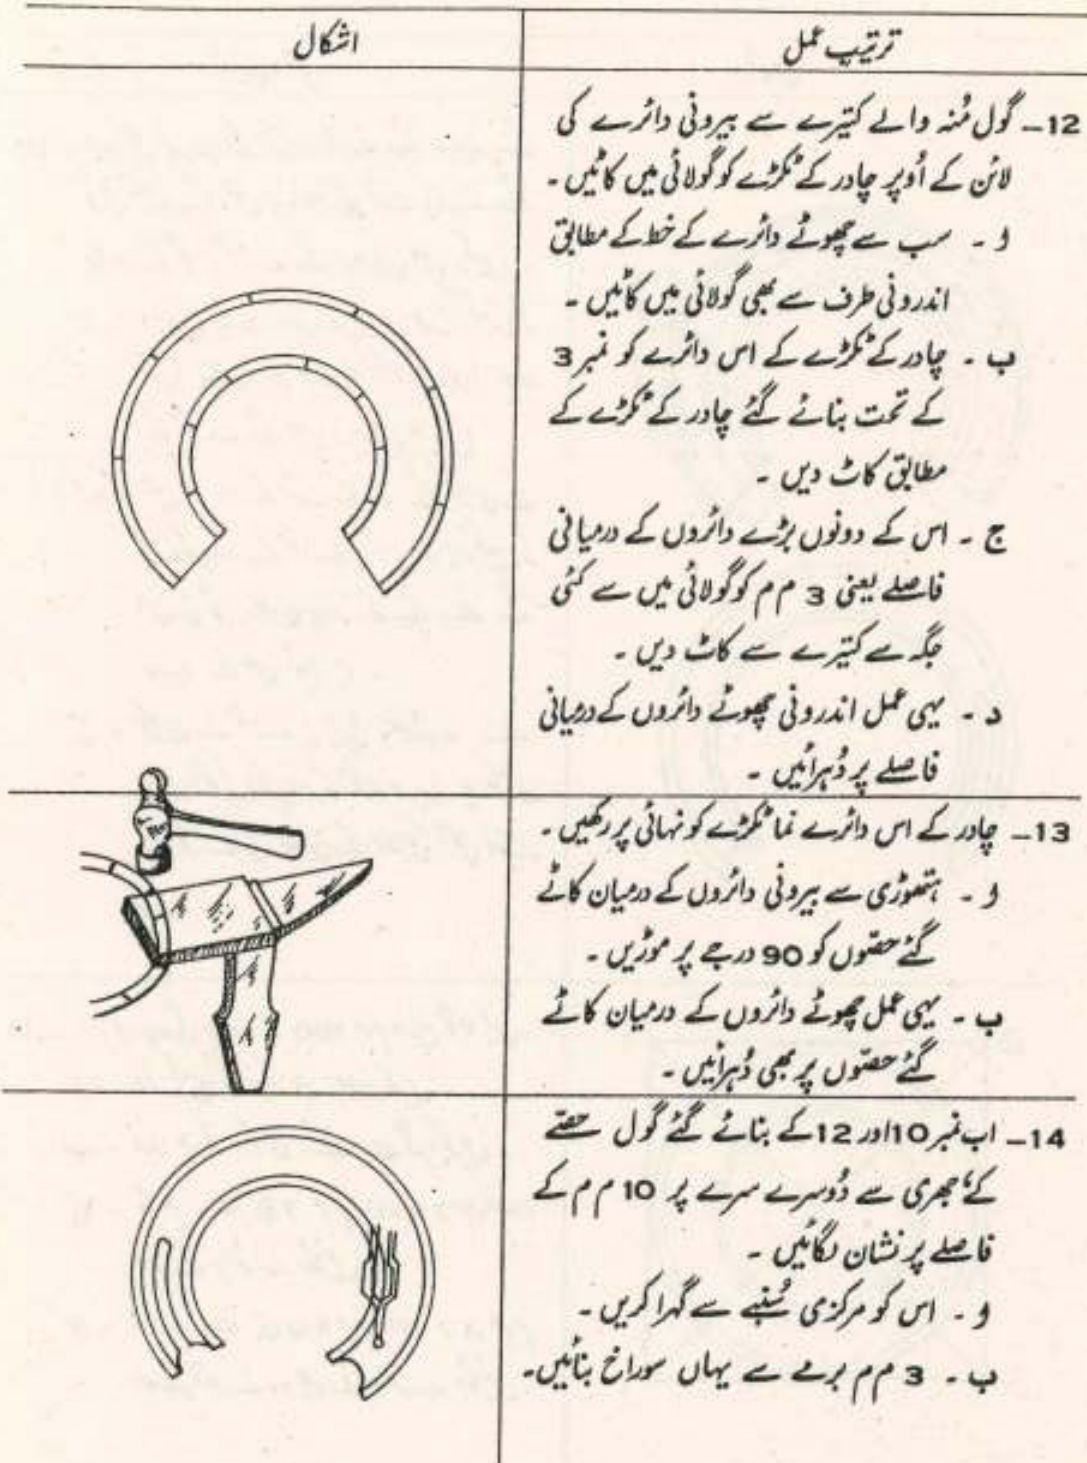 ترتیبِ عمل
اشکال
12_ گول مُنہ والے کتیرے سے بیرونی دائرے کی
لائن کے اُوپر چادر کے ٹکڑے کو گولائی میں کاٹیں ۔
ا ۔ سب سے چھوٹے دائرے کے خط کے مطابق
اندرونی طرف سے بھی گولائی میں کاٹیں ۔
ب ۔ چادر کے ٹکڑے کے اس دائرے کو نمبر 3
کے تحت بنائے گئے چادر کے ٹکڑے کے
مطابق کاٹ دیں ۔
ج ۔ اس کے دونوں بڑے دائروں کے درمیانی
فاصلے یعنی 3 م م کو گولائی میں سے کئی
جگہ سے کتیرے سے کاٹ دیں ۔
د ۔ یہی عمل اندرونی چھوٹے دائروں کے درمیانی
فاصلے پر دُہرائیں ۔
13_ چادر کے اس دائرے نما ٹکڑے کو نہائی پر رکھیں ۔
ا ۔ ہتھوڑی سے بیرونی دائروں کے درمیان کاٹے
گئے حصّوں کو 90 درجے پر موڑیں ۔
ب ۔ یہی عمل چھوٹے دائروں کے درمیان کاٹے
گئے حصّوں پر بھی دُہرائیں ۔
14_ اب نمبر 10 اور 12 کے بنائے گئے گول حصّے
کے، جھری سے دُوسرے سرے پر 10 م م کے
فاصلے پر نشان لگائیں ۔
ا ۔ اس کو مرکزی سُنبے سے گہرا کریں ۔
ب ۔ 3 م م برمے سے یہاں سوراخ بنائیں۔